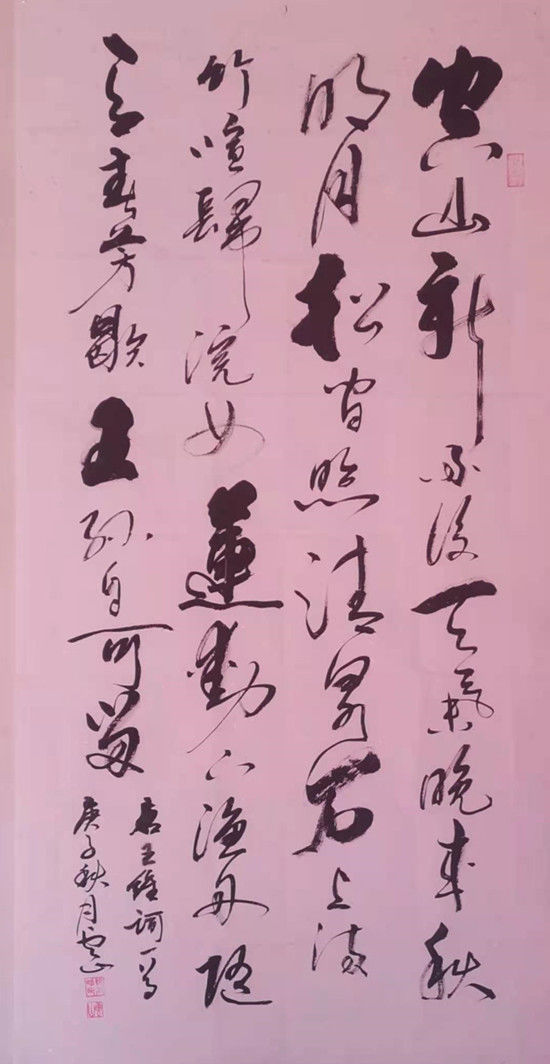 空山新雨後天氣晚來秋
明月松間照清泉石上流
竹喧歸浣女蓮動下漁舟隨
意春芳歇王孫自可留
唐王維詞一首
庚子秋月云山